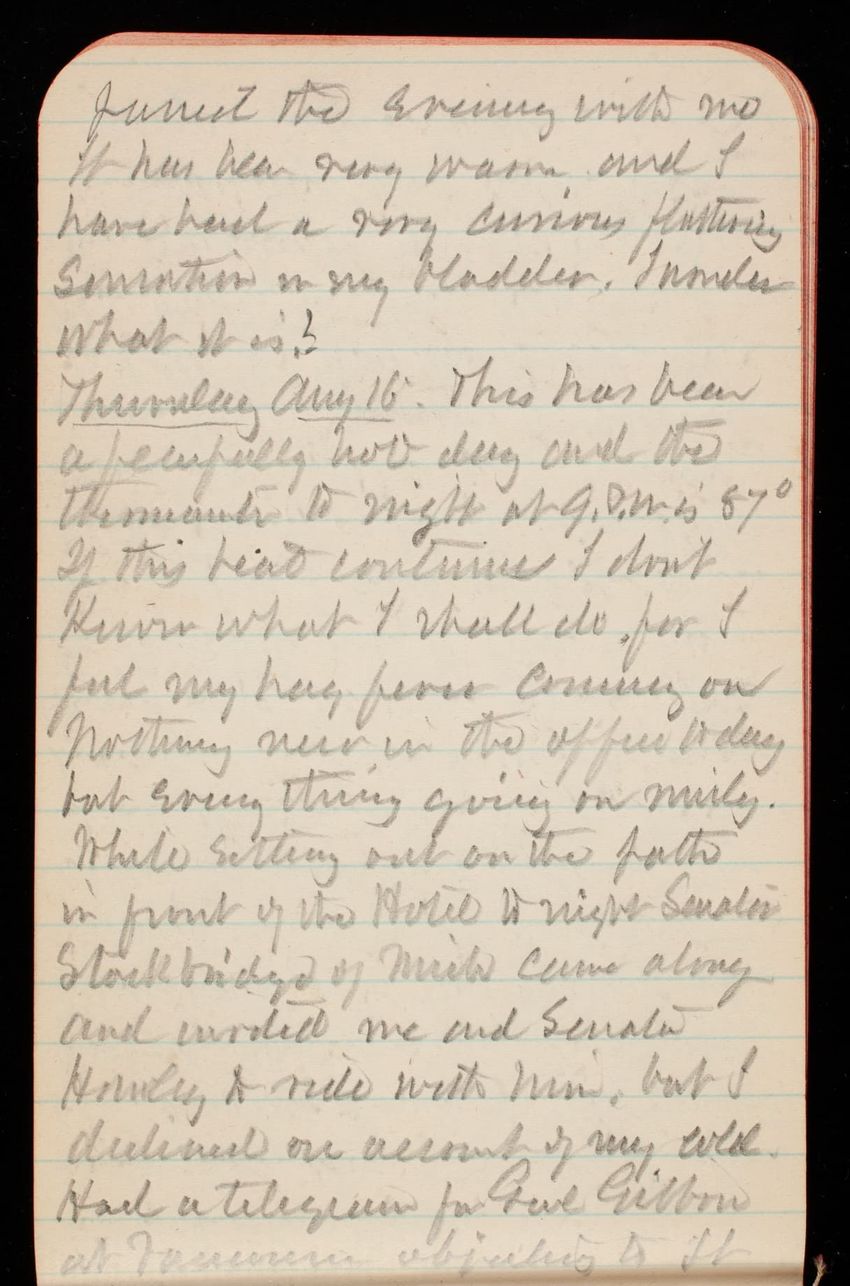 passed the Evening with me
It has been very warm and I
have had a very curious fluttering
Sensation in my bladder. I wonder
what it is?
Thursday Aug 16. This has been
a fearfully hot day and the
thermometer to night at 9.P.M. is 87°
If this heat continues I dont
Know what I shall do, for I
feel my hay fever coming on
Nothing new in the office to day
but Every thing going on nicely.
While sitting out on the path
in front of the Hotel to night Senator
Stockbridge of Mich came along
and invited me and Senator
Hawley to ride with him, but I
declined on account of my cold.
Had a telegram for Genl Gibbon
at objecting to Lt